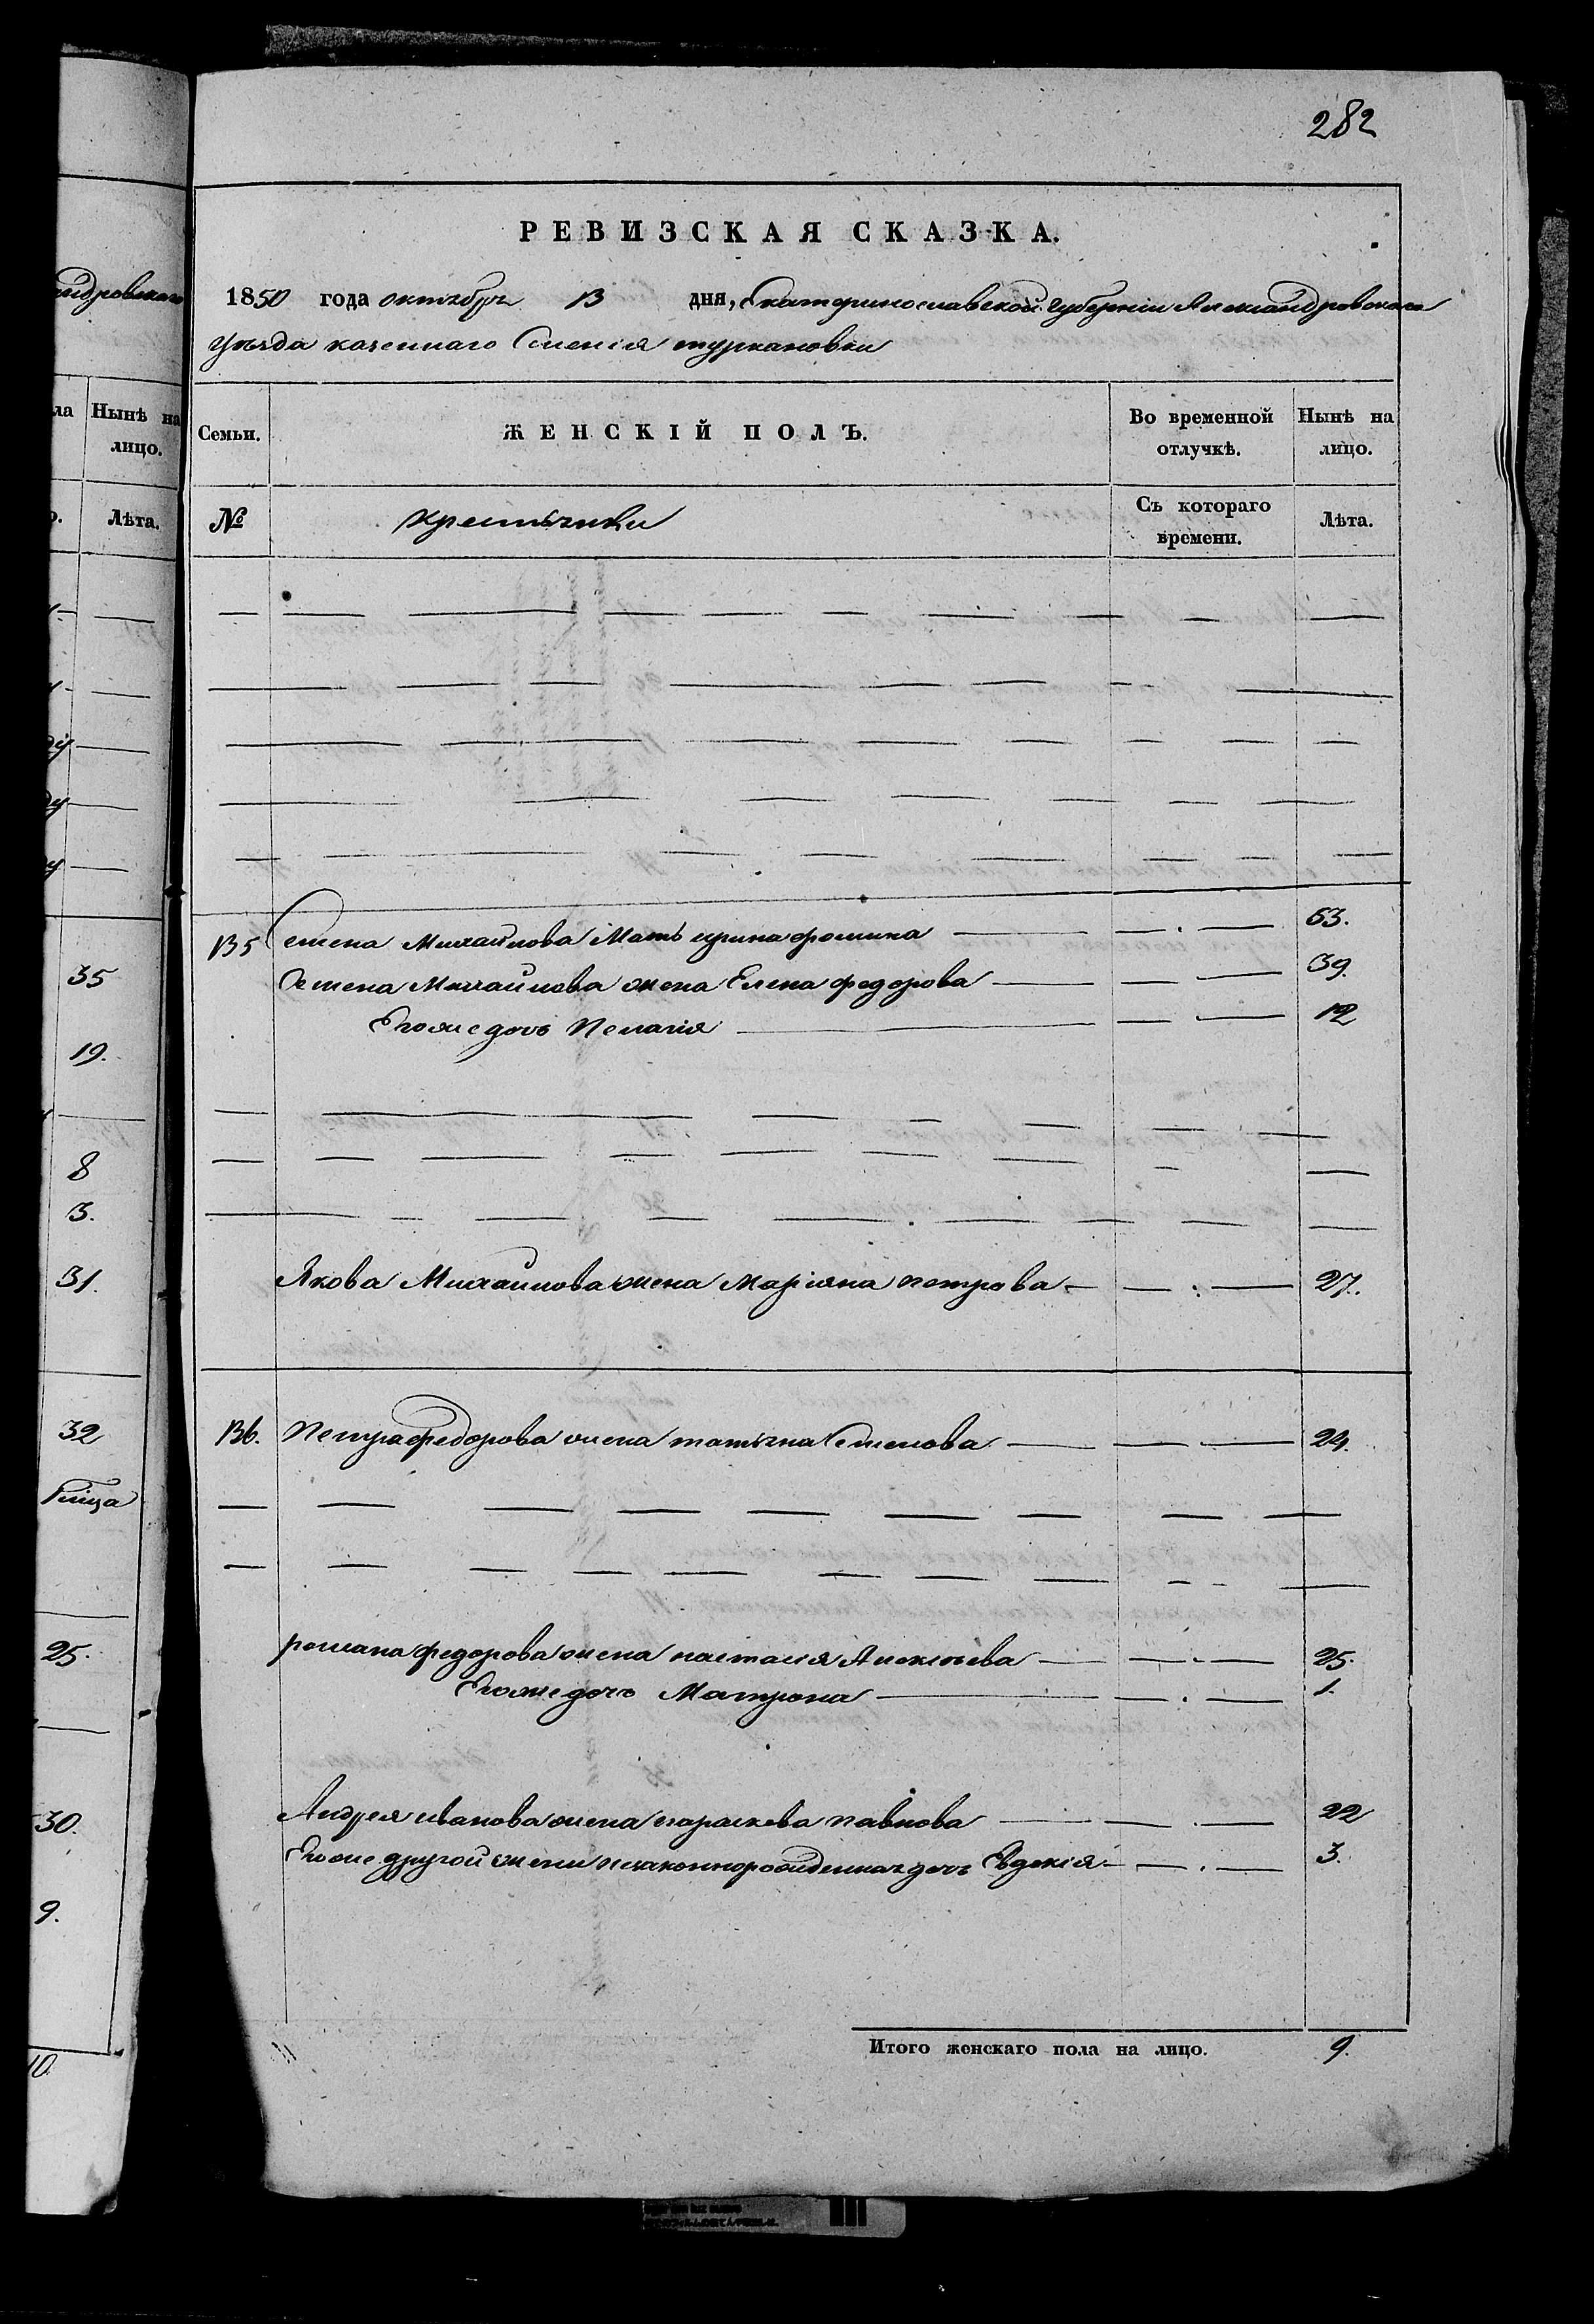 282
андровскаго
РЕВИЗСКАЯ СКАЗКА.
1850 года октября 13 дня, Екатеринославской губерніи Александровскаго
уѣзда казеннаго Сmенія туркановки
ла
Нынѣ на лицо.
Семьи.
ЖЕНСКІЙ ПОЛЪ.
Во временной отлучкѣ.
Нынѣ на лицо.
Лѣта.
№
крестьянки
Съ котораго времени.
Лѣта.
135 Семена Михайлова Мать ирина фомина 63.
Семена Михайлова жена Елена федорова 39.
Егоже дочь Пелагія 12
Якова Михайлова жена Маріяна петрова 27.
136. Петра федорова жена татьяна Семенова 24.
романа федорова жена настасія Алексѣева 25.
Егоже дочь Матрона 1.
Андрея иванова жена параскева павлова 22
Егоже другой жены незаконнорожденная дочь Евдокія 3.
Итого женскаго пола на лицо. 9.
35
19.
8
3.
31.
32
25.
30.
9.
10